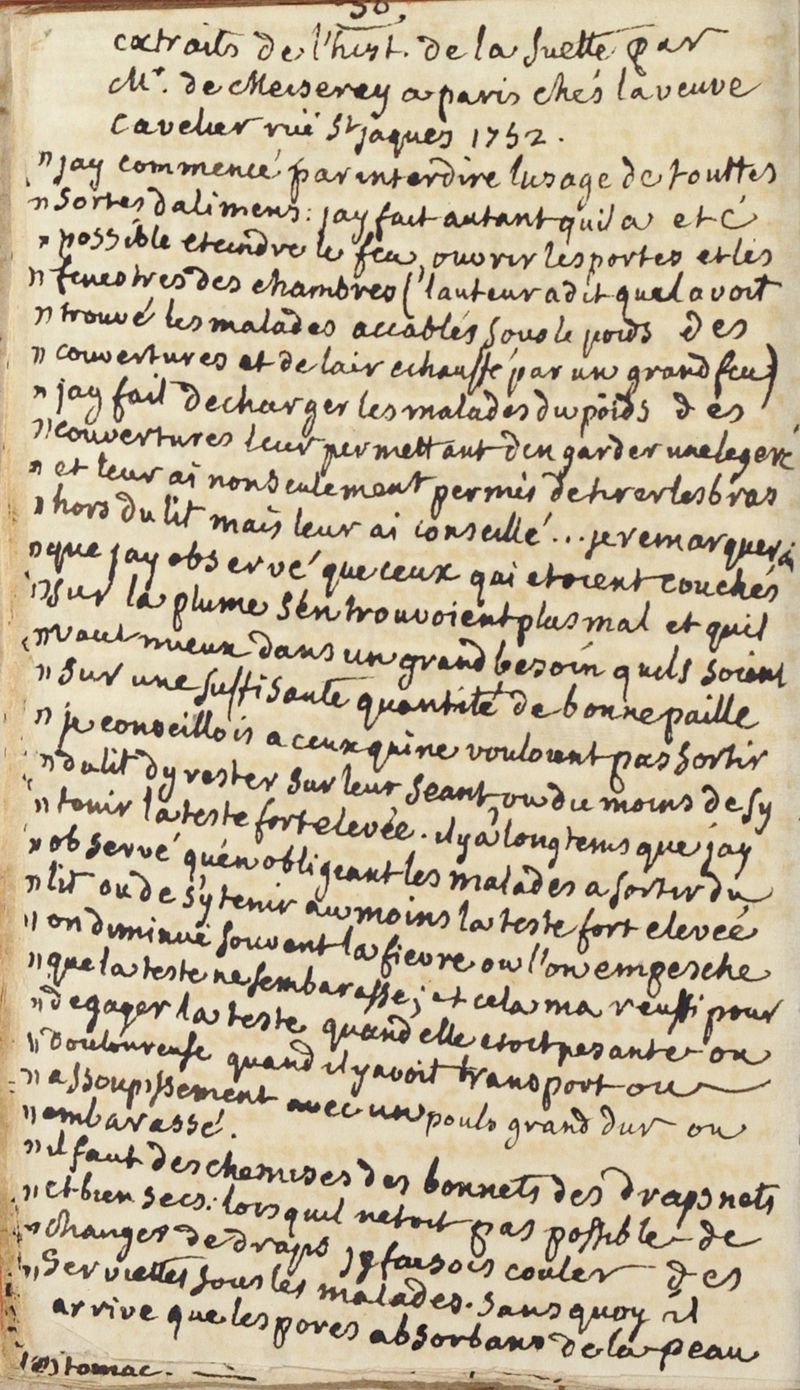 30.
extraits de l'hist. de la suette par
Mr. de Meiserey a paris chés la veuve
Cavelier rüe St jaques 1752.
" jay commencé par interdire lusage de touttes
" sortes dalimens: jay fait autant quil a eté
" possible eteindre le feu, ouvrir les portes et les
" fenestres des chambres (l'auteur a dit quel avoit
" trouvé les malades accablés sous le poids des
" couvertures et de lair echauffé par un grand feu)
" jay fait decharger les malades du poids des
" couvertures leur permettant d'en garder une legere
" et leur ai non seulement permis de tirer les bras
" hors du lit mais leur ai conseillé... je remarquerai
" que jay observé que ceux qui etoient couchés
" sur la plume s'en trouvoient plus mal et quil
" vaut mieux dans un grand besoin quils soient
" sur une suffisante quantité de bonne paille
" je conseillois a ceux qui ne vouloient pas sortir
" du lit dy rester sur leur seant, ou du moins de sy
" tenir la teste fort elevée. il y a longtems que jay
" observé qu'en obligeant les malades a sortir du
" lit ou de s'y tenir au moins la teste fort elevée
" on diminue souvent la fievre ou l'on empesche
" que la teste ne sembarasse; et cela ma reussi pour
" degager la teste quand elle etoit pesante ou
" douloureuse quand il y avoit transport ou
" assoupissement avec un pouls grand dur ou
" embarassé.
" il faut des chemises des bonnets des draps nets
" et bien secs: lors quil netoit pas possible de
" changer de draps je faisois couler des
" serviettes sous les malades. sans quoy il
arrive que les pores absorbans de la peau
estomac.